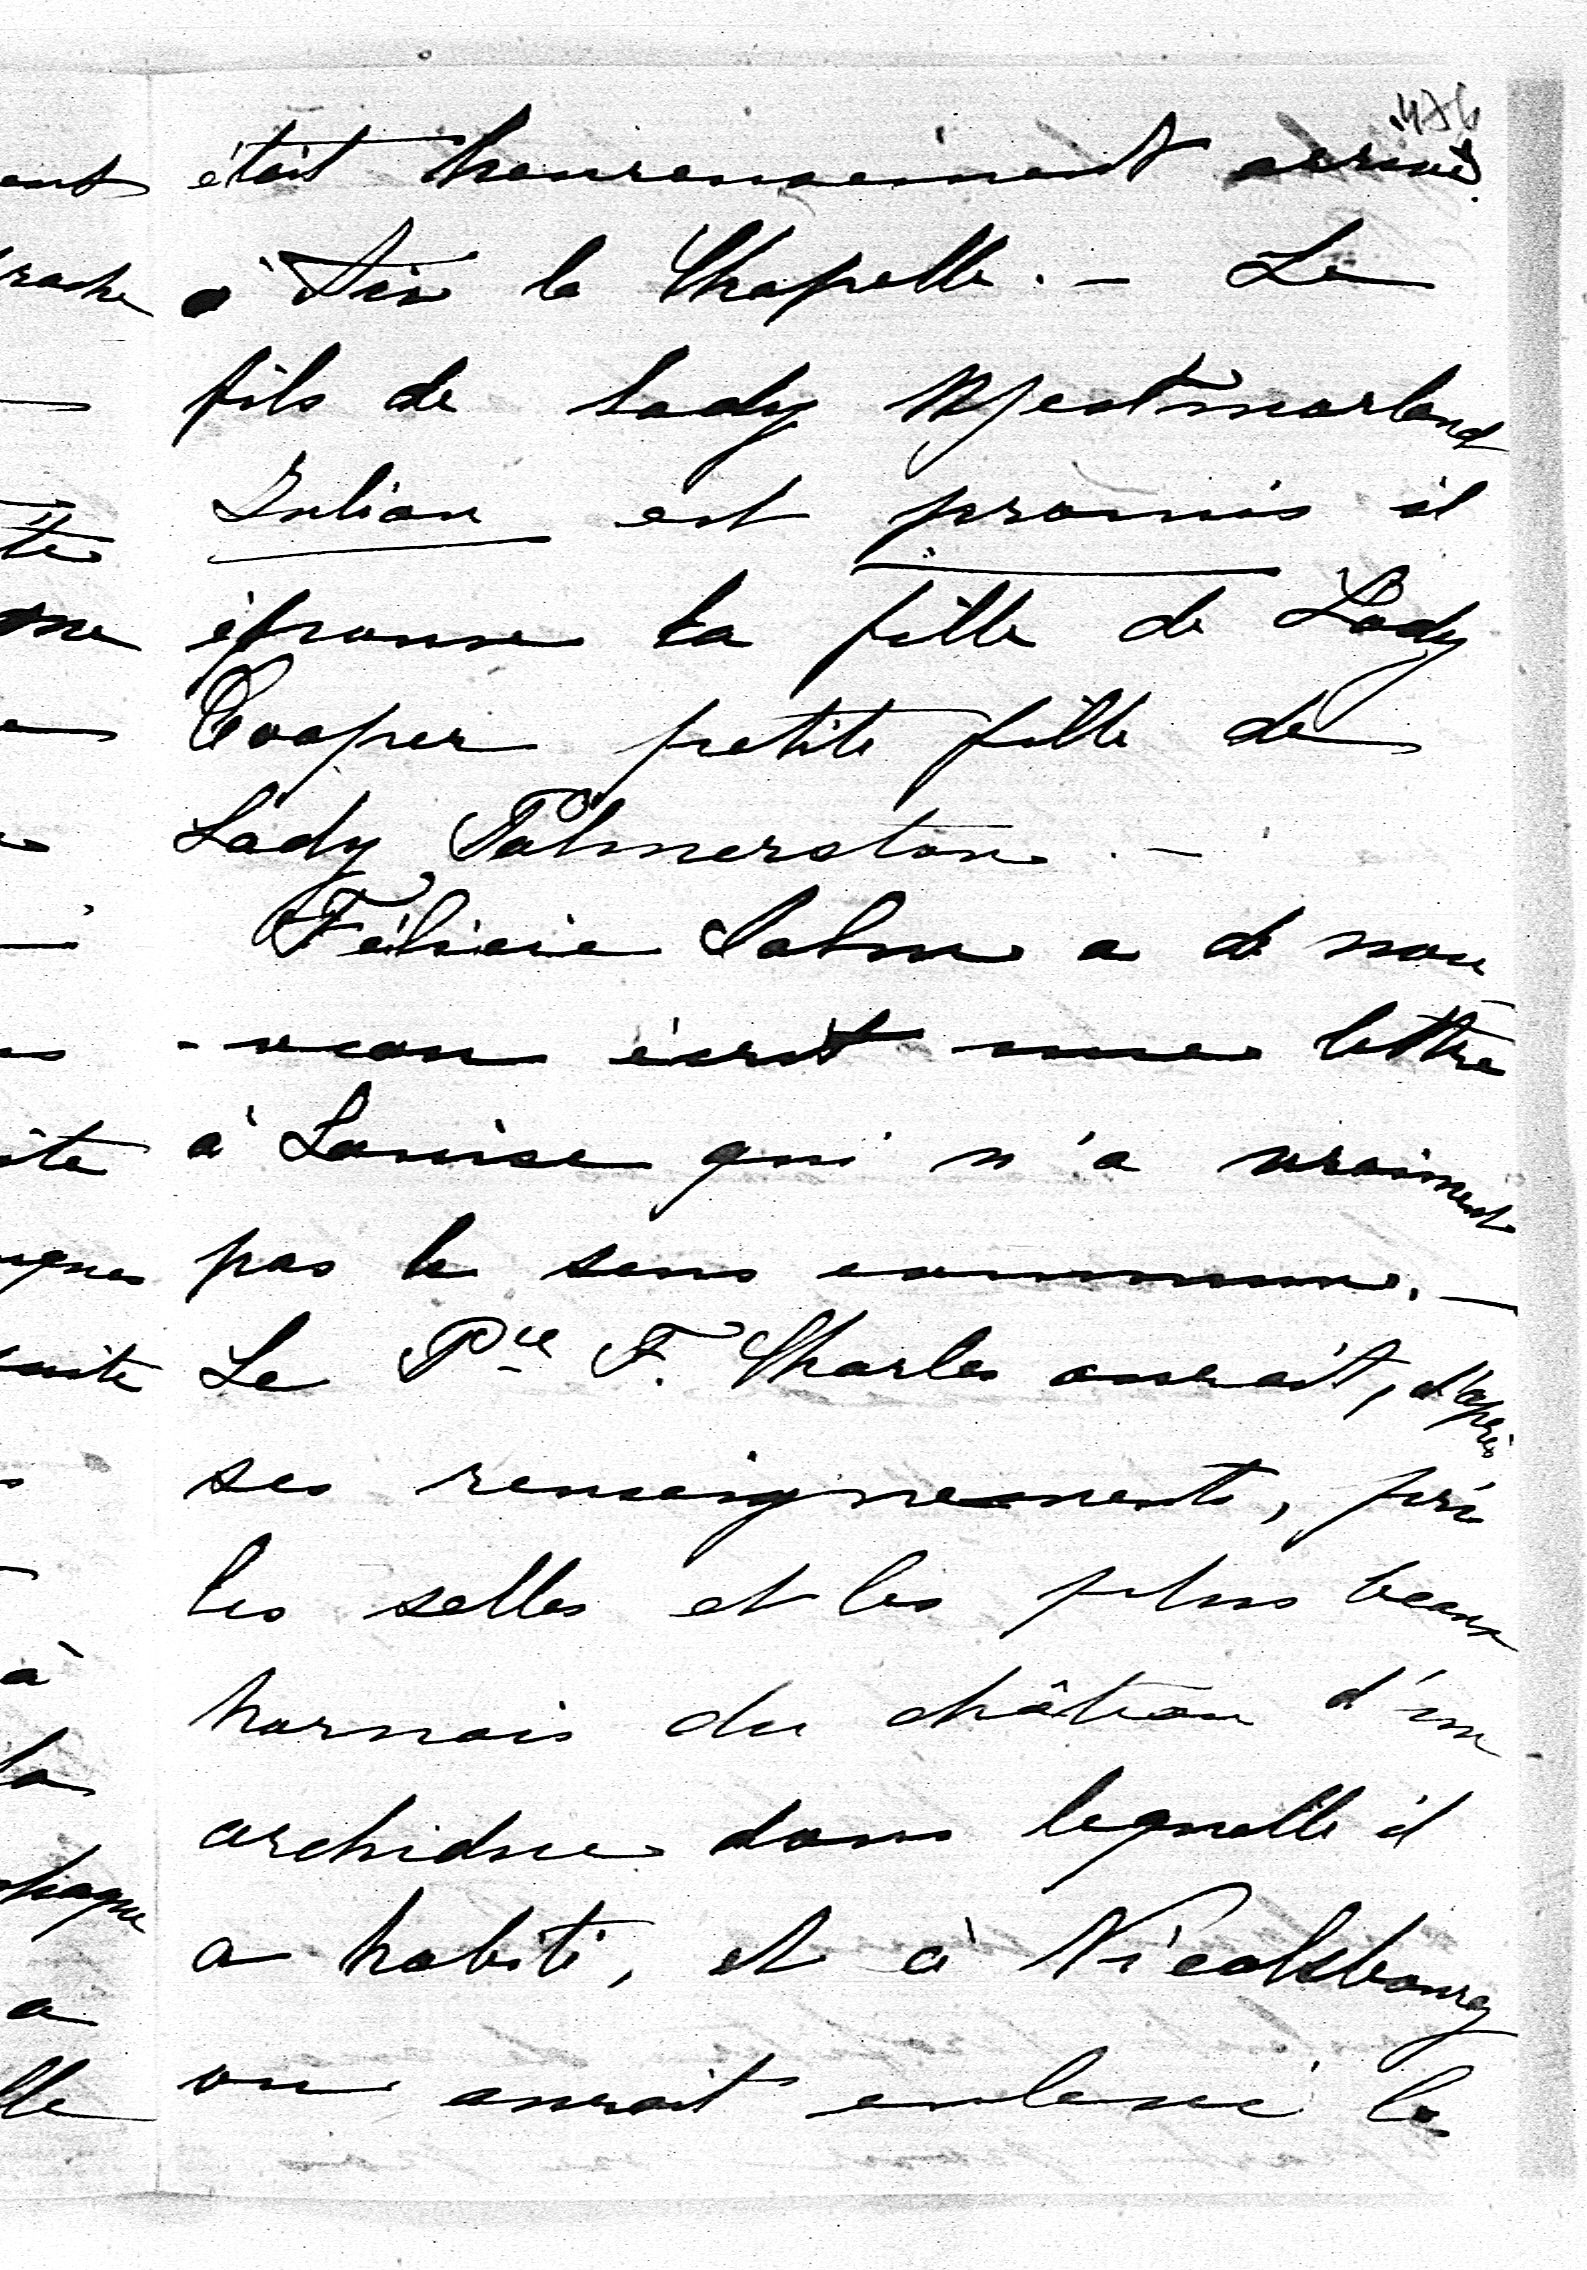 476
était heureusement arrivé
à Aix la Chapelle. – Le
fils de Lady Westmorland
Julian est promis il
épouse la fille de Lady
Cooper petite fille de
Lady Palmerston. –
Félicie Salm a de nou
-veau écrit une lettre
à Louise qui n'a vraiment
pas le sens commun. –
Le Pce F. Charles aurait, d'après
ses renseignements, pris
les selles et les plus beaux
harnais du château d'un
archiduc dans lequelle il
a habité, et à Nicolsbourg
on aurait enlevé les